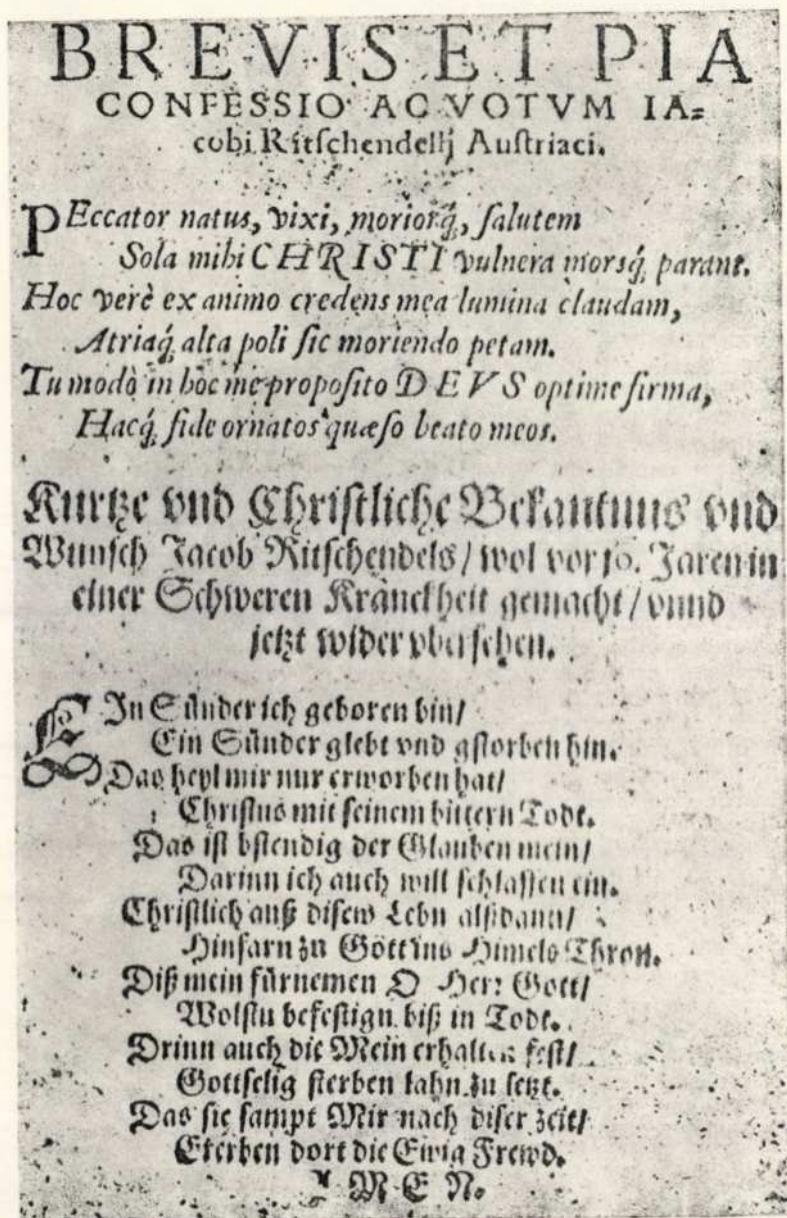 BREVIS ET PIA
CONFESSIO AC VOTVM IA=
cobi Ritſchendellij Auſtriaci.
PEccator natus, vixi, moriorq́, ſalutem
Sola mihi CHRISTI vulnera morsq́ parant.
Hoc verè ex animo credens mea lumina claudam,
Atriaq́ alta poli ſic moriendo petam.
Tu modò in hoc me propoſito DEVS optime firma,
Hacq́ fide ornatos quæſo beato meos.
Kurtze vnd Chriſtliche Bekantnus vnd
Wunſch Jacob Ritſchendels / wol vor 16. Jaren in
einer Schweren Kranckheit gemacht / vnnd
jetzt wider vberſehen.
EIn Sünder ich geboren bin /
Ein Sünder glebt vnd gſtorben hin.
Das heyl mir nur erworben hat /
Chriſtus mit ſeinem bittern Todt.
Das iſt bſtendig der Glauben mein /
Darinn ich auch will ſchlaffen ein.
Chriſtlich auß diſem Lebn alſdann /
Hinfarn zu Gott ins Himels Thron.
Diß mein fürnemen O Herr Gott /
Wolſtu befeſtign biß in Todt.
Drinn auch die Mein erhalten feſt /
Gottſelig ſterben lahn zu letzt.
Das ſie ſampt Mir nach diſer zeit /
Ererben dort die Ewig Frewd.
A M E N.